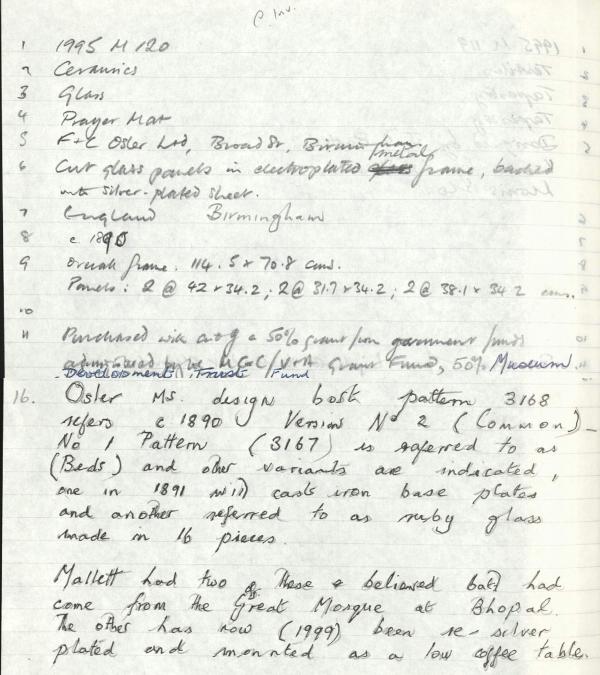 P Inv.
1 1995 M 120
2 Ceramics
3 Glass
4 Prayer Mat
5 F+C Osler Ltd, Broad St, Birmingham
6 Cut glass panels in electroplated metal frame, backed
with silver-plated sheet.
7 England Birmingham
8 c 1890
9 Overall frame. 114.5 x 70.8 cms.
Panels: 2 @ 42 x 34.2; 2 @ 31.7 x 34.2; 2 @ 38.1 x 34.2 cms.
10
11 Purchased with aid of a 50% grant from government funds
administered by the MGC/V+A Grant Fund, 50% Museum
Development Trust Fund
16. Osler Ms. design book pattern 3168
refers c 1890 Version No 2 (Common) -
No 1 Pattern (3167) is referred to as
(Beds) and other variants are indicated,
one in 1891 with casts iron base plates
and another referred to as ruby glass
made in 16 pieces.
Mallett had two of these & believed both had
come from the Great Mosque at Bhopal.
The other has now (1999) been re-silver
plated and mounted as a low coffee table.